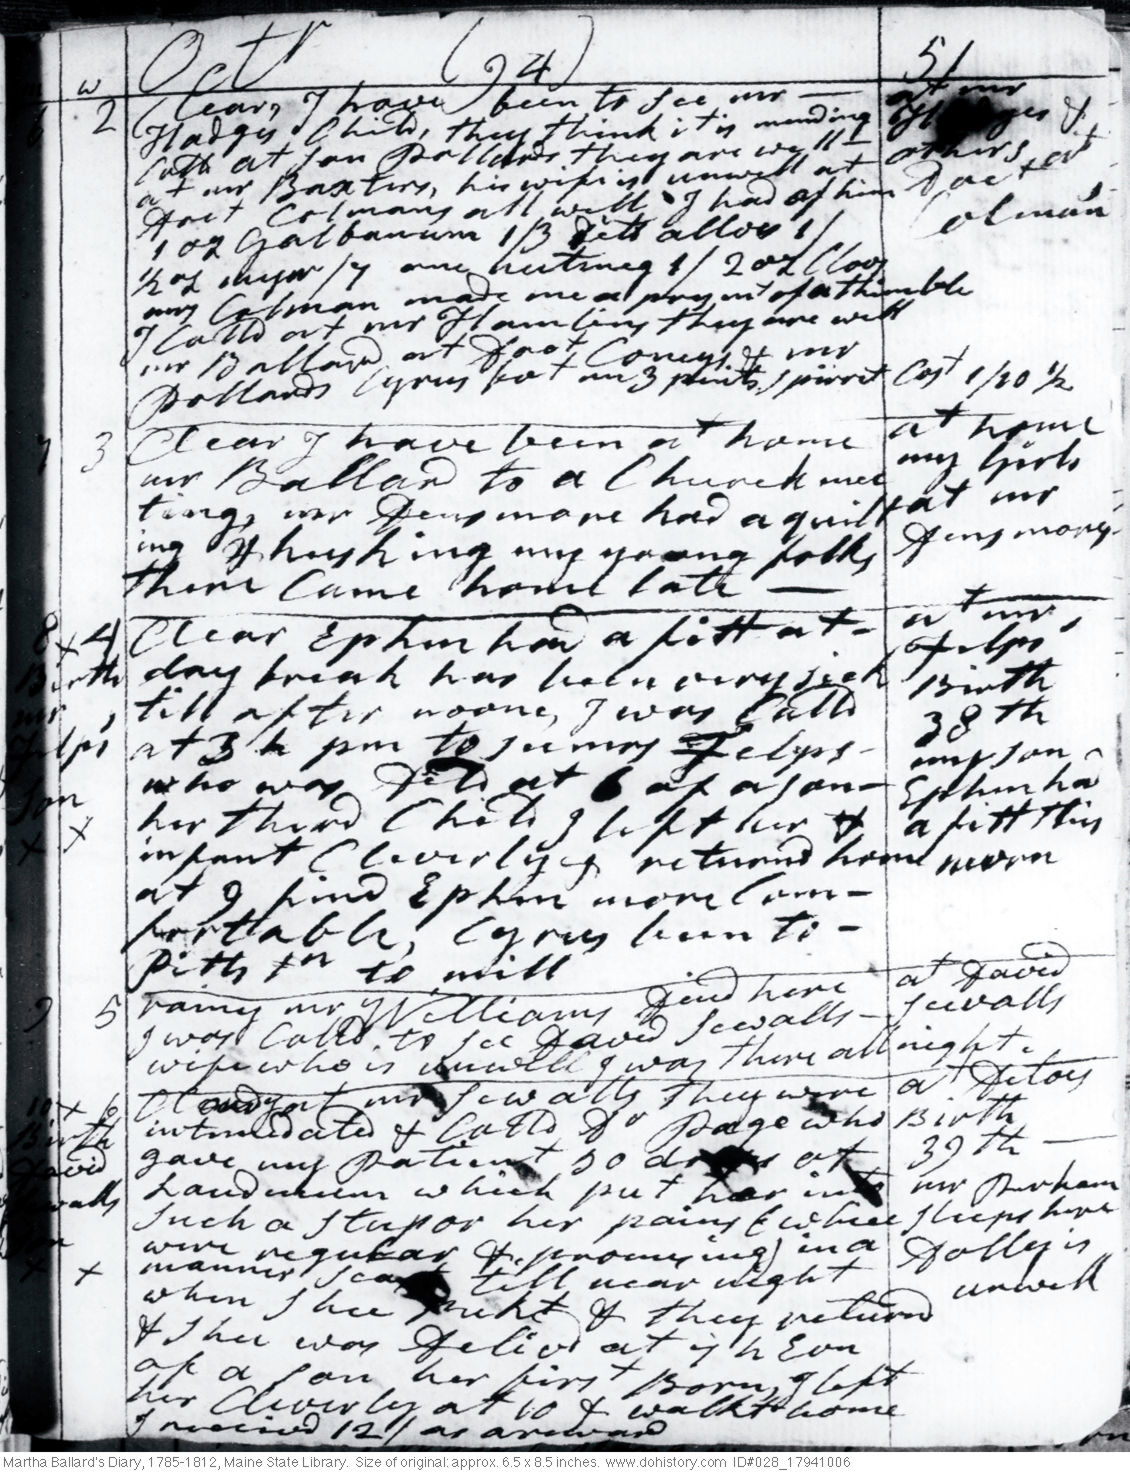 Octr (94) 51
m w
6 2 Clear, I have been to see mr — at mr
Hodges Child, they think it is mending Hodges &
Calld at Son Pollards they are well others, at
at mr Baxters, his wife is unwell at Doct
Doct Colmans all well I had of him Colman
1 oz Galbanum 1/3 allow 1/
½ oz myrr /7 one nutmeg 1/ 2 oz Cloos
Colman made me a present of a thimble
I Calld at mr Hamlins they are well
mr Ballard at Doct Conys & mr
Pollards Cyrus got me 3 pints spirret Cost 1/10 ½
7 3 Clear I have been at home at home
mr Ballard to a Church mee my Girls
ting, mr Densmore had a quilt at mr
ing & husking my young folks Densmores
there Came home late —
8 x 4 Clear Ephm had a fitt at- at mr
Birth day break has been very sick Felps
mr till after noone, I was Calld Birth
Felps at 3 h pm to see mrs Felps- 38th
Son who was Deld at 6 of a son- my son
x x her third Child I left her & Ephm had
infant Cleverly & returnd home a fitt this
at 9 find Ephm more Com- morn
fortable, Cyrus been to-
Pitts tn to mill
9 5 rainy mr Williams Dind here at David
I was Calld to see David Sewalls- Sewalls
wife who is unwell I was there all night.
10 x 6 Cloudy at mr Sewalls they were at Ditoes
Birth intimedated & Calld Dr Page who Birth
David gave my patient 20 drops of 39th —
Sewalls Laudnum which put her into mr Parham
Son such a stupor her pains (which sleeps here
x x were regular & promising) in a Dolly is
manner till near night unwell
when shee pukt & they returnd
& shee was Delivd at 7 h Evn
of a son her first Born, I left
her Cleverly at 10 & walkt home
I received 12/ as a reward
Martha Ballard's Diary, 1785-1812, Maine State Library. Size of original: approx. 6.5 x 8.5 inches. www.dohistory.com ID#028_17941006